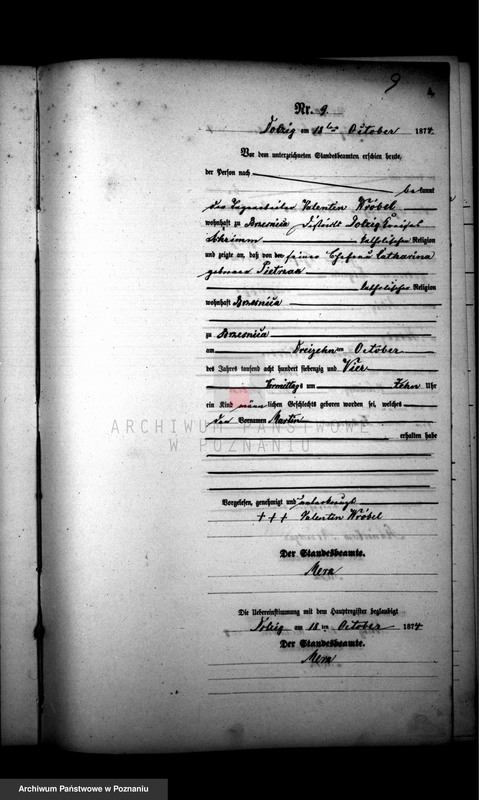 9
4
Nr. 9.
Dolzig am 18 ten October 1874.
Vor dem unterzeichneten Standesbeamten erschien heute,
der Person nach
be kannt
der Tagearbeiter Valentin Wróbel
wohnhaft zu Brzesnica District Dolzig Kreises
Schrimm katholischer Religion
und zeigte an, daß von der seiner Ehefrau Catharina
geborene
katholischer Religion
wohnhaft Brzesnica
zu Brzesnica
am Dreizehn ten October
des Jahres tausend acht hundert siebenzig und Vier
Vormittags um Zehn Uhr
ein Kind männ lichen Geschlechts geboren worden sei, welches
den Vornamen Martin
erhalten habe
ARCHIWUM PAŃSTWOWE
W POZNANIU
Vorgelesen, genehmigt und unterkreuzt
+++ Valentin Wróbel
Der Standesbeamte.
Mera
Die Uebereinstimmung mit dem Hauptregister beglaubigt
Dolzig am 18 ten October 1874
Der Standesbeamte.
Mera
Archiwum Państwowe w Poznaniu